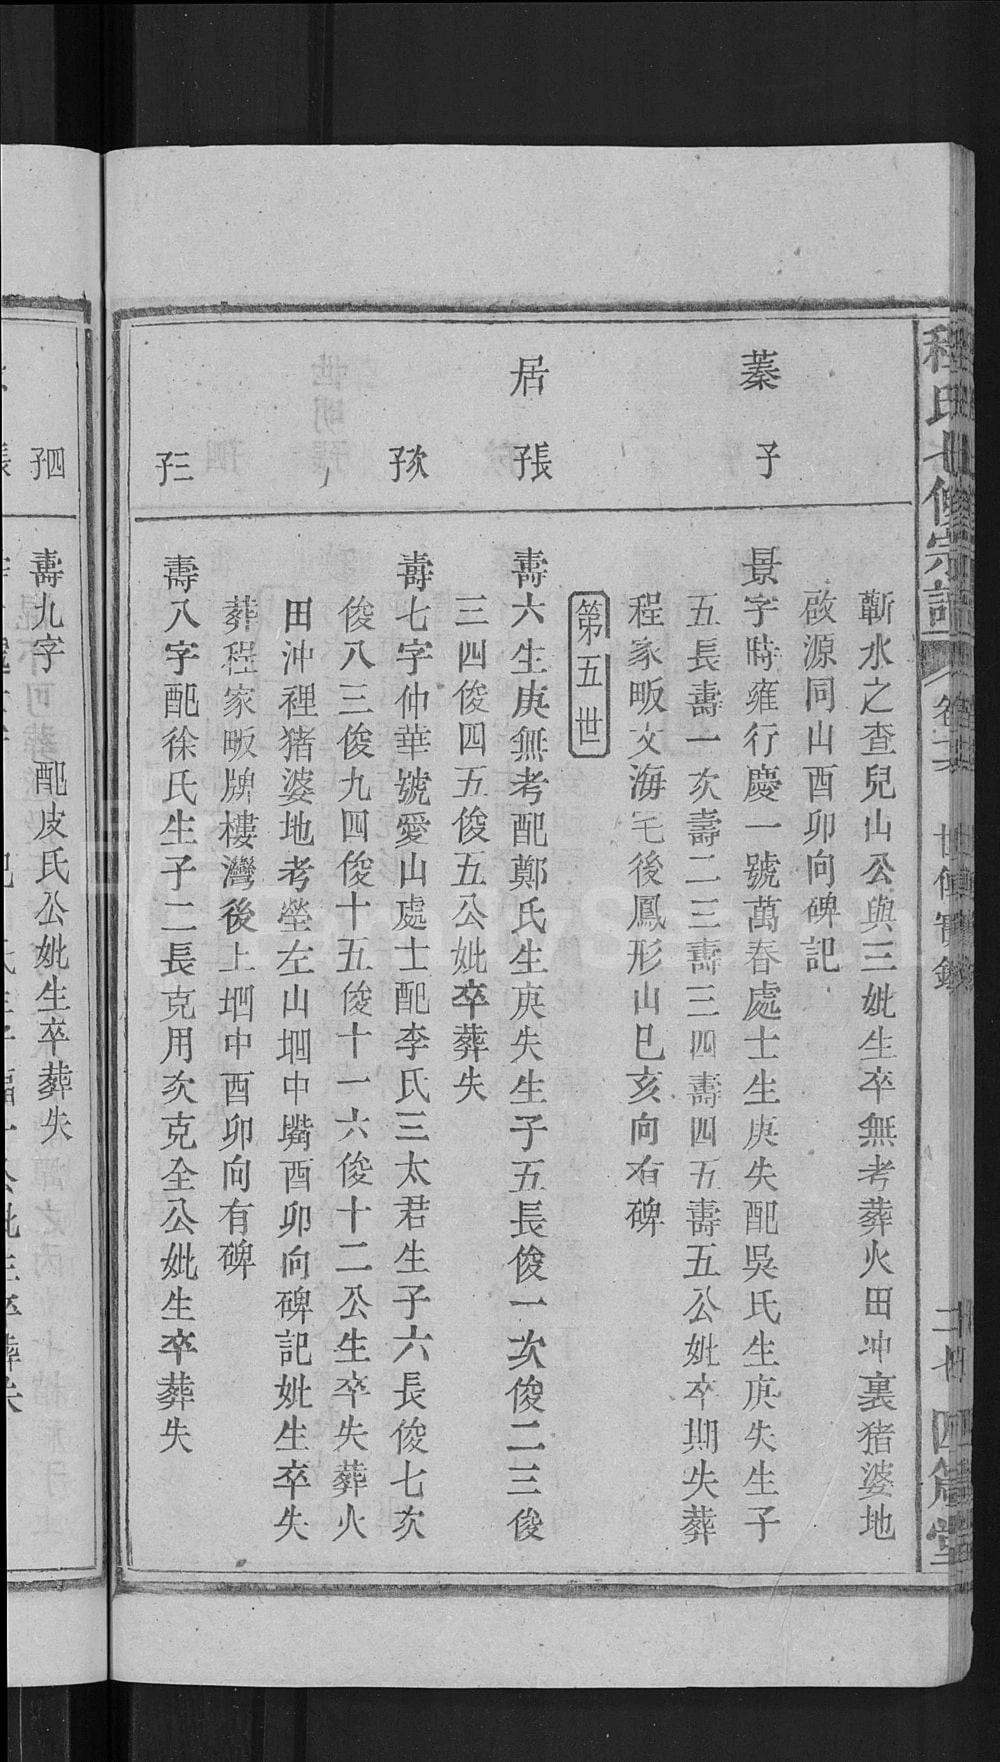 程氏七修宗譜 卷六 世傳實錄 二十 四箴堂
蘄水之查兒山公與三妣生卒無考葬火田冲裏猪婆地
啟源同山酉卯向碑記
蓁子
景字時雍行慶一號萬春處士生庚失配吳氏生庚失生子
五長壽一次壽二三壽三四壽四五壽五公妣卒期失葬
程家畈文海宅後鳳形山巳亥向有碑
第五世
居長子
壽六生庚無考配鄭氏生庚失生子五長俊一次俊二三俊
三四俊四五俊五公妣卒葬失
次子
壽七字仲華號愛山處士配李氏三太君生子六長俊七次
俊八三俊九四俊十五俊十一六俊十二公生卒失葬火
田沖裡猪婆地考塋左山堌中嘴酉卯向碑記妣生卒失
葬程家畈牌樓灣後上堌中酉卯向有碑
三子
壽八字配徐氏生子二長克用次克全公妣生卒葬失
四子
壽九字 配皮氏公妣生卒葬失